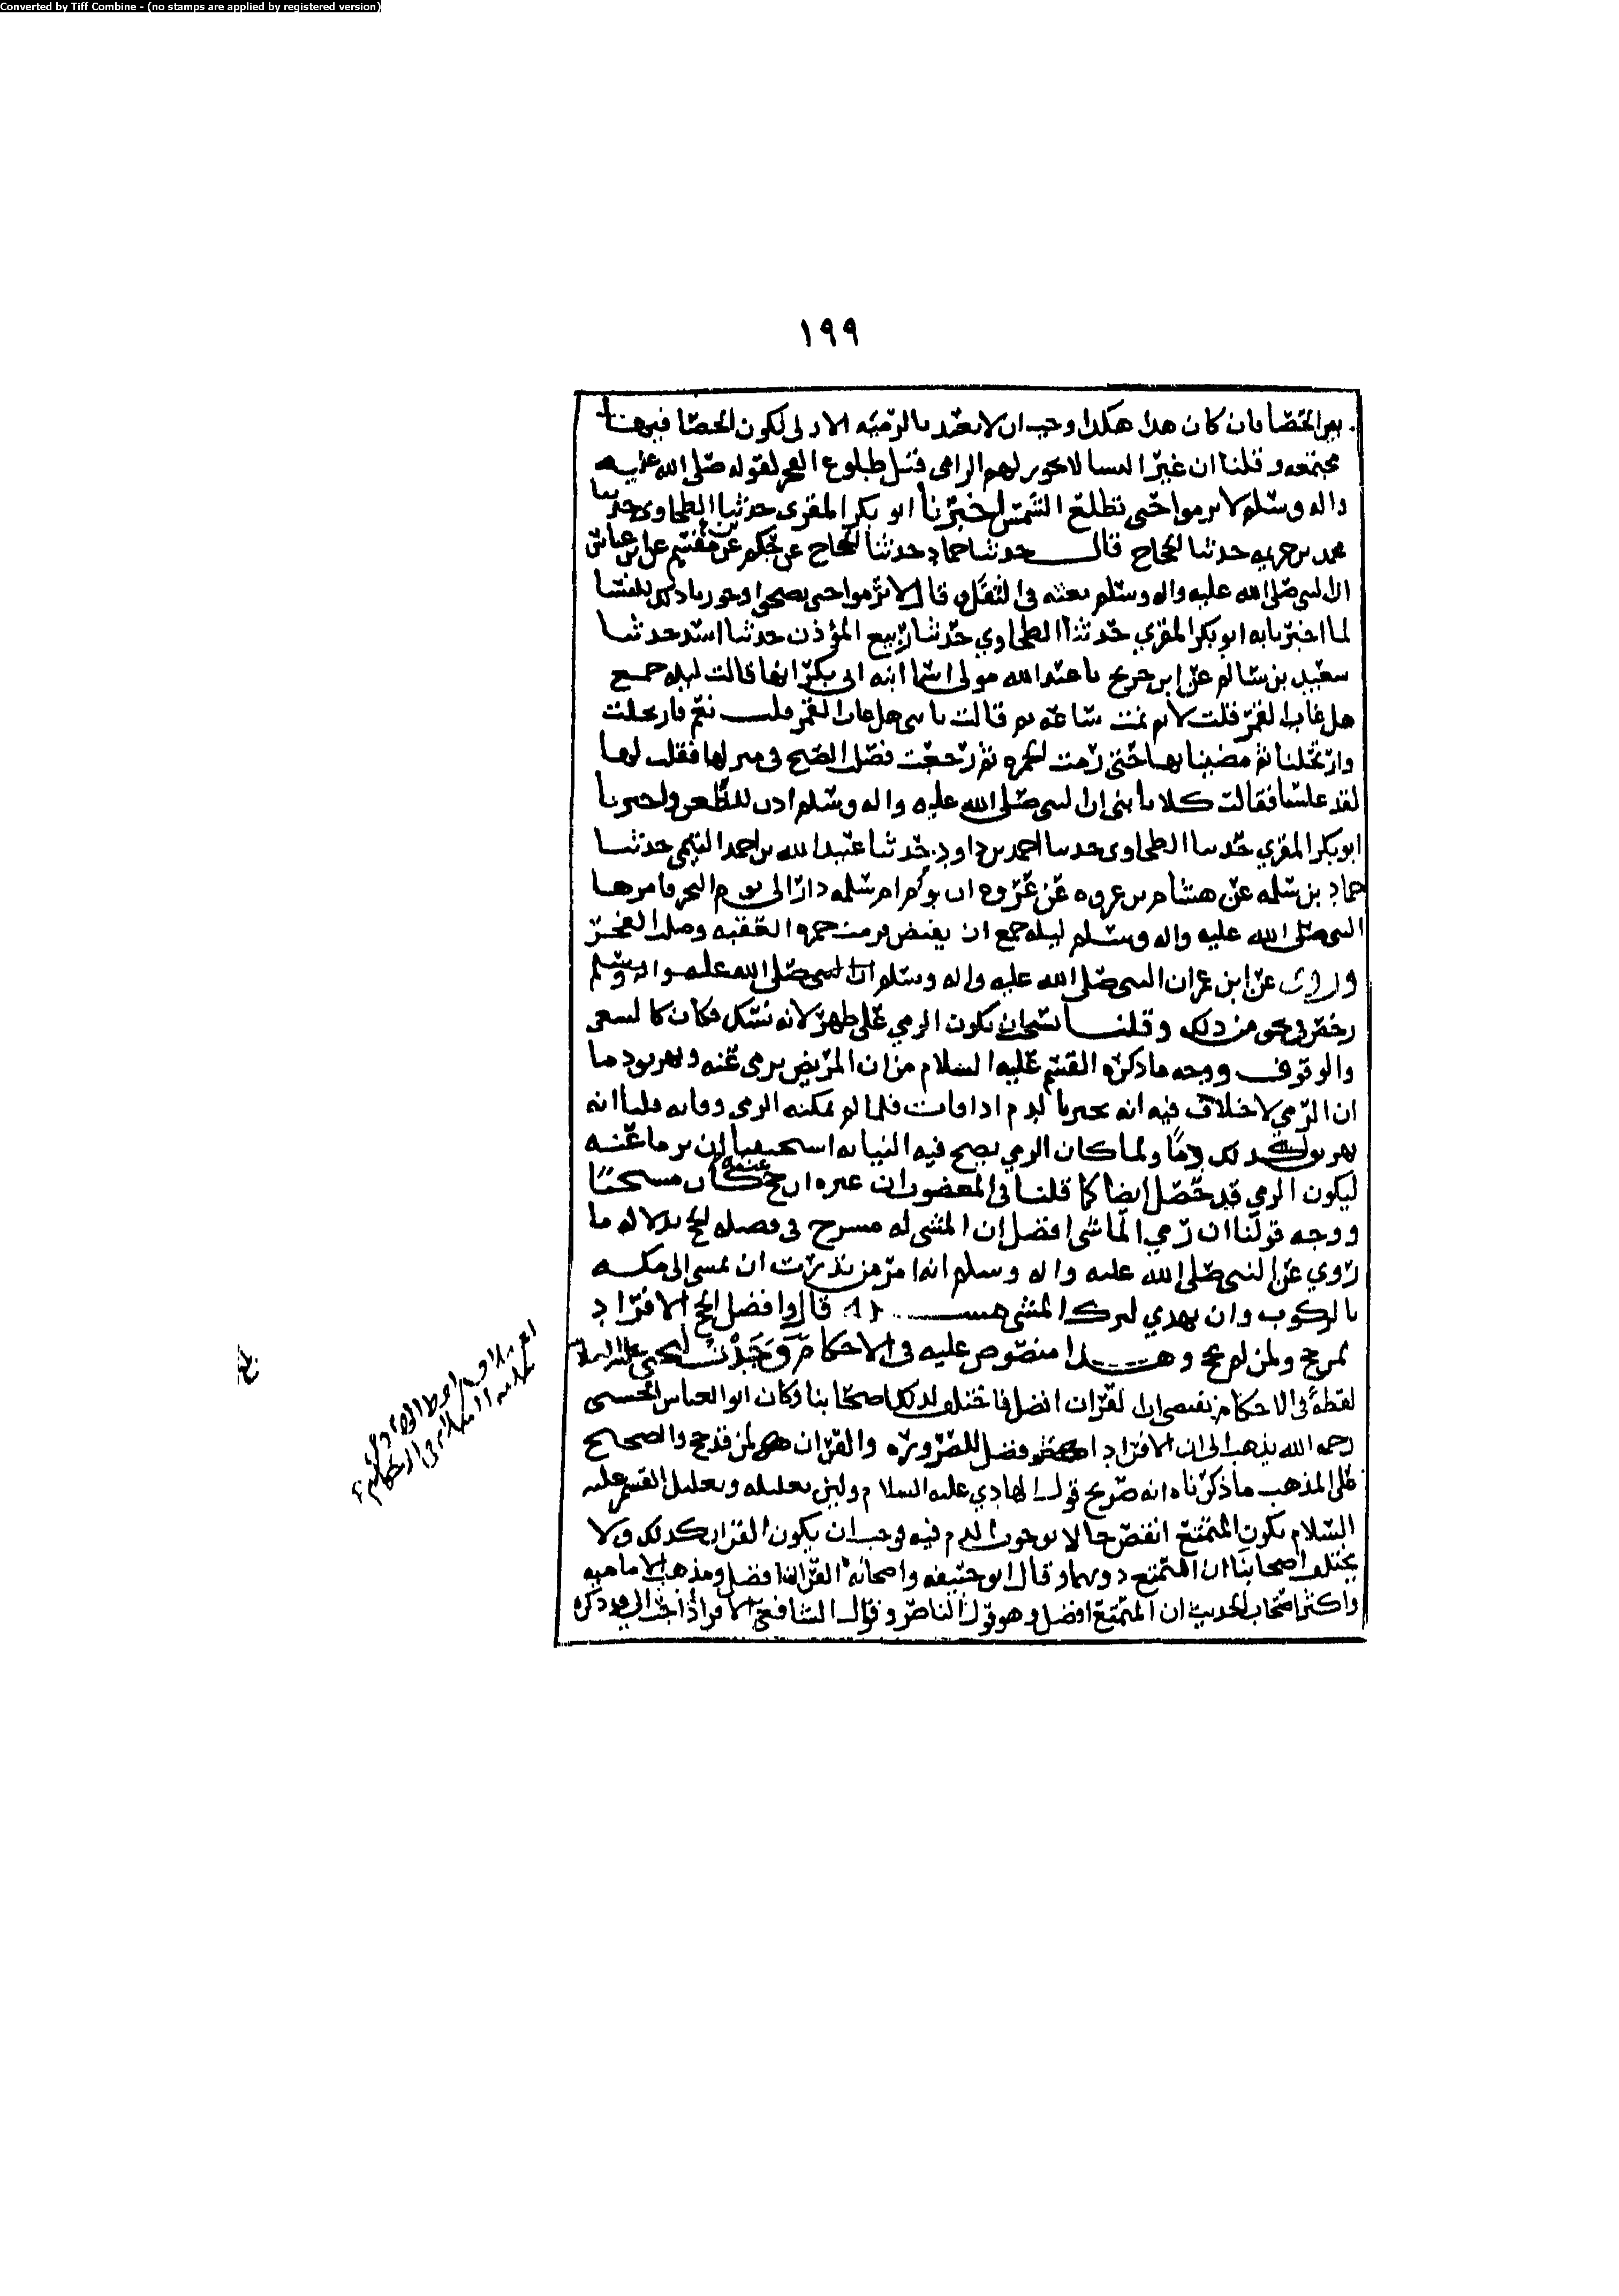 Converted by Tiff Combine - (no stamps are applied by registered version)
١٩٩
بين الحصا فان كان هذا هكذا وجب ان لا يعتد بالرمية الاولى لكون الحصا فيها
مجتمعه وقلنا ان غير النسا لا يجوز لهم الرامى قبل طلوع الفجر لقوله صلى الله عليه
واله وسلم لا ترموا حتى تطلع الشمس اخبرنا ابو بكر المقرى حدثنا الطحاوى حدثنا
محمد بن خزيمه حدثنا الحجاج قال حدثنا حماد حدثنا الحجاج عن الحكم عن مقسم عن ابن عباس
ان النبى صلى الله عليه واله وسلم بعثه فى الثقل وقال لا ترموا حتى تصبحوا وجوزنا ذلك للنسا
لما اخبرنا به ابو بكر المقرى حدثنا الطحاوي حدثنا ربيع المؤذن حدثنا اسد حدثنا
سعيد بن سالم عن ابن جريج عبد الله مولى اسما ابنه ابى بكر انها قالت ليله جمع
هل غاب القمر فقلت لا ثم نمت ساعه ثم قالت يا بنى هل غاب القمر قلت نعم فارتحلت
وارتحلنا ثم مضينا بها حتى رمت الجمره ثم رجعت فصلت الصبح فى منزلها فقلت لها
لقد غلسنا فقالت كلا يا بنى ان النبى صلى الله عليه واله وسلم اذن للظعن واخبرنا
ابو بكر المقري حدثنا الطحاوى حدثنا احمد بن داود حدثنا عبيد الله بن احمد التيمى حدثنا
حماد بن سلمه عن هشام بن عروه عن عروه ان يوم ام سلمه دار الى يوم النحر فامرها
النبى صلى الله عليه واله وسلم ليله جمع ان يفيض فرمت جمره العقبه وصلت الفجر
وروى عن ابن عمر ان النبى صلى الله عليه واله وسلم ان النبى صلى الله عليه واله وسلم
رخص فى نحو من ذلك وقلنا يستحب ان يكون الرمي على طهر لانه نسك فكان كالسعى
والوقوف ووجه ما ذكره القسم عليه السلام من ان المريض يرمى عنه ويهريق دما
ان الرمي لا خلاف فيه انه يجبر بالدم اذا فات فلما لم يمكنه الرمى وفاته قلنا انه
يهريق لذلك دمًا ولما كان الرمي يصح فيه النيابه استحببنا ان يرما عنه
ليكون الرمي قد حصل ايضا كما قلنا فى المعضوب ان غيره ان حج عنه كان مستحبًا
ووجه قولنا ان رمي الماشى افضل ان المشى له مسرح فى فضيله الحج بدلاله ما
روي عن النبى صلى الله عليه واله وسلم انه امر من نذرت ان تمشى الى مكه
بالركوب وان يهدي لترك المشى قال وافضل الحج الافراد
لمن حج ولمن لم يحج وهذا منصوص عليه فى الاحكام وَوَجَدْتُ ليحيى عليه السلام
لفظة فى الاحكام تقتضى ان القران افضل فاختلف لذلك اصحابنا وكان ابو العباس الحسنى
رحمه الله يذهب الى ان الافراد افضل للصروره والقران لمن قد حج والصحيح
على المذهب ما ذكرناه انه صريح قول الهادي عليه السلام ولان تعليله وتعليل القسم عليه
السلام بكون المتمتع انقص حالا لوجوب الدم فيه يوجب ان يكون القران كذلك ولا
يختلف اصحابنا ان التمتع دونهما وقال ابو حنيفه واصحابه القران افضل ومذهب الاماميه
واكثر اصحاب الحديث ان التمتع افضل وهو قول الناصر وقال الشافعى الافراد احب الى ذكره